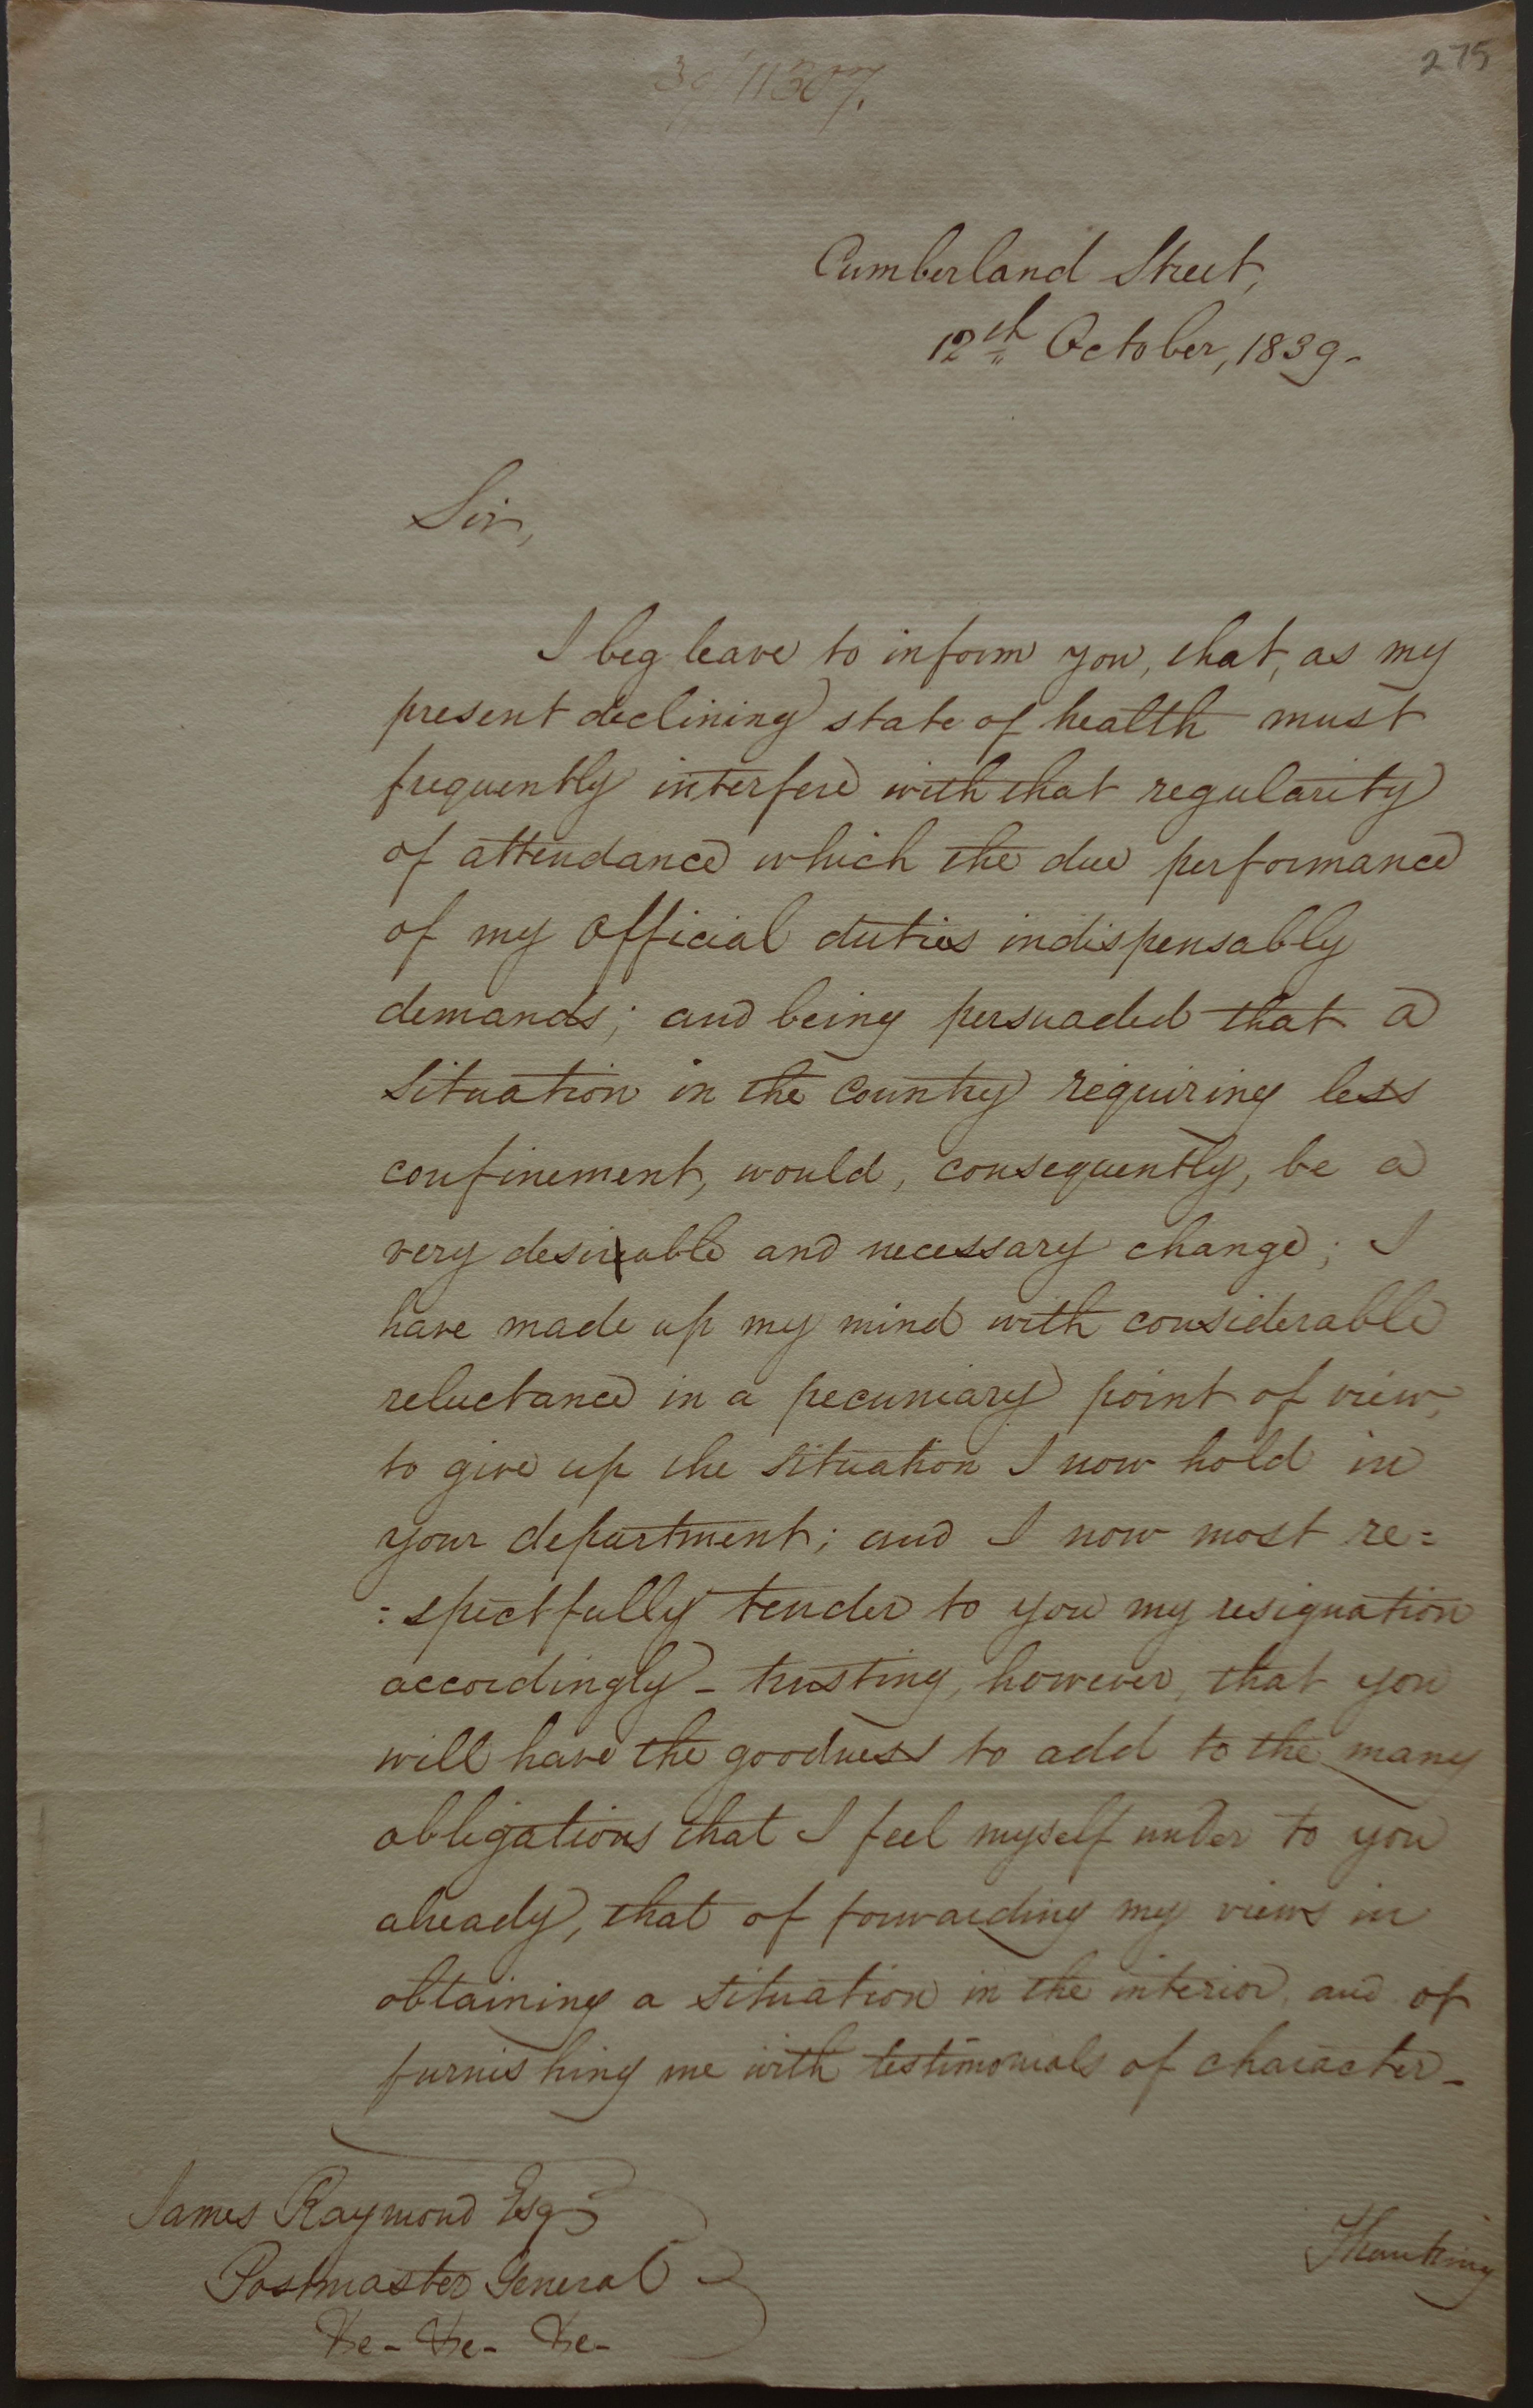 275
39/11307.
Cumberland Street,
12th October, 1839-
Sir,
I beg leave to inform you, that, as my
present declining state of health must
frequently interfere with that regularity
of attendance which the due performance
of my official duties indispensably
demands; and being persuaded that a
situation in the Country requiring less
confinement, would, consequently, be a
very desirable and necessary change; I
have made up my mind with considerable
reluctance in a pecuniary point of view,
to give up the situation I now hold in
your department; and I now most re=
=spectfully tender to you my resignation
accordingly - trusting, however, that you
will have the goodness to add to the many
obligations that I feel myself under to you
already, that of forwarding my views in
obtaining a situation in the interior, and of
furnishing me with testimonials of character -
James Raymond Esqr
Postmaster General
&c - &c - &c -
Thanking